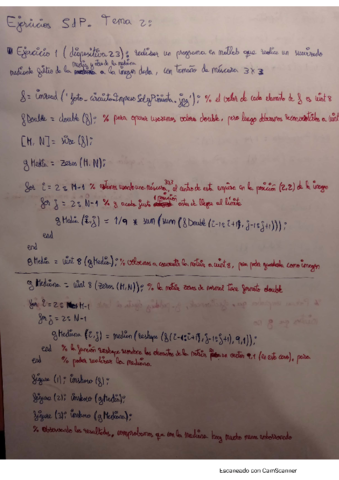 Ejercicios SdP. Tema 2:
Ejercicio 1 (diapositiva 23): realizar un programa en matlab que realice un suavizado
mediante filtro de la media y otro de la mediana a la imagen dada, con tamaño de máscara 3x3
f = imread('foto_circuito impreso sal y pimienta.jpg'); % el valor de cada elemento de f es uint8
fDouble = double(f); % para operar usaremos valores double, pero luego debemos
[M, N] = size(f);
gMedia = zeros(M, N);
for i = 2:M-1 % el centro de este estará en la posición (2,2) de la imagen
for j = 2:N-1 % antes de llegar al límite
gMedia(i,j) = 1/9 * sum(sum(fDouble(i-1:i+1, j-1:j+1)));
end
end
gMedia = uint8(gMedia); % volvemos a convertir la matriz a uint8, para poder guardarla como imagen
gMediana = uint8(zeros(M,N)); % la matriz zeros de normal tiene formato double
for i = 2:M-1
for j = 2:N-1
gMediana(i,j) = median(reshape(f(i-1:i+1, j-1:j+1), 9, 1));
end % la función reshape los elementos de la matriz un vector 9,1 (en este caso), para
end % poder realizar la mediana
figure(1); imshow(f);
figure(2); imshow(gMedia);
figure(3); imshow(gMediana);
% observando los resultados, comprobamos que en la mediana hay mucho menos
Escaneado con CamScanner